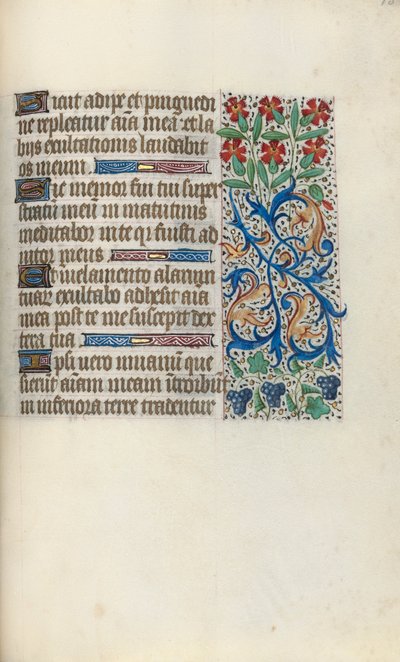 Sicut adipe et pinguedi
ne repleatur aīa mea et la
bijs exultationis laudabit
os meum
Sic memor fui tui super
stratū meū in matutinis
meditabor in te qꝛ fuisti ad
iutor meus
Et in velamento alarū
tuarū exultabo adhesit aīa
mea post te me suscepit dex
tera tua
Ipsi vero in vanū que
sierūt aīam meam ītroibūt
in inferiora terre tradentur